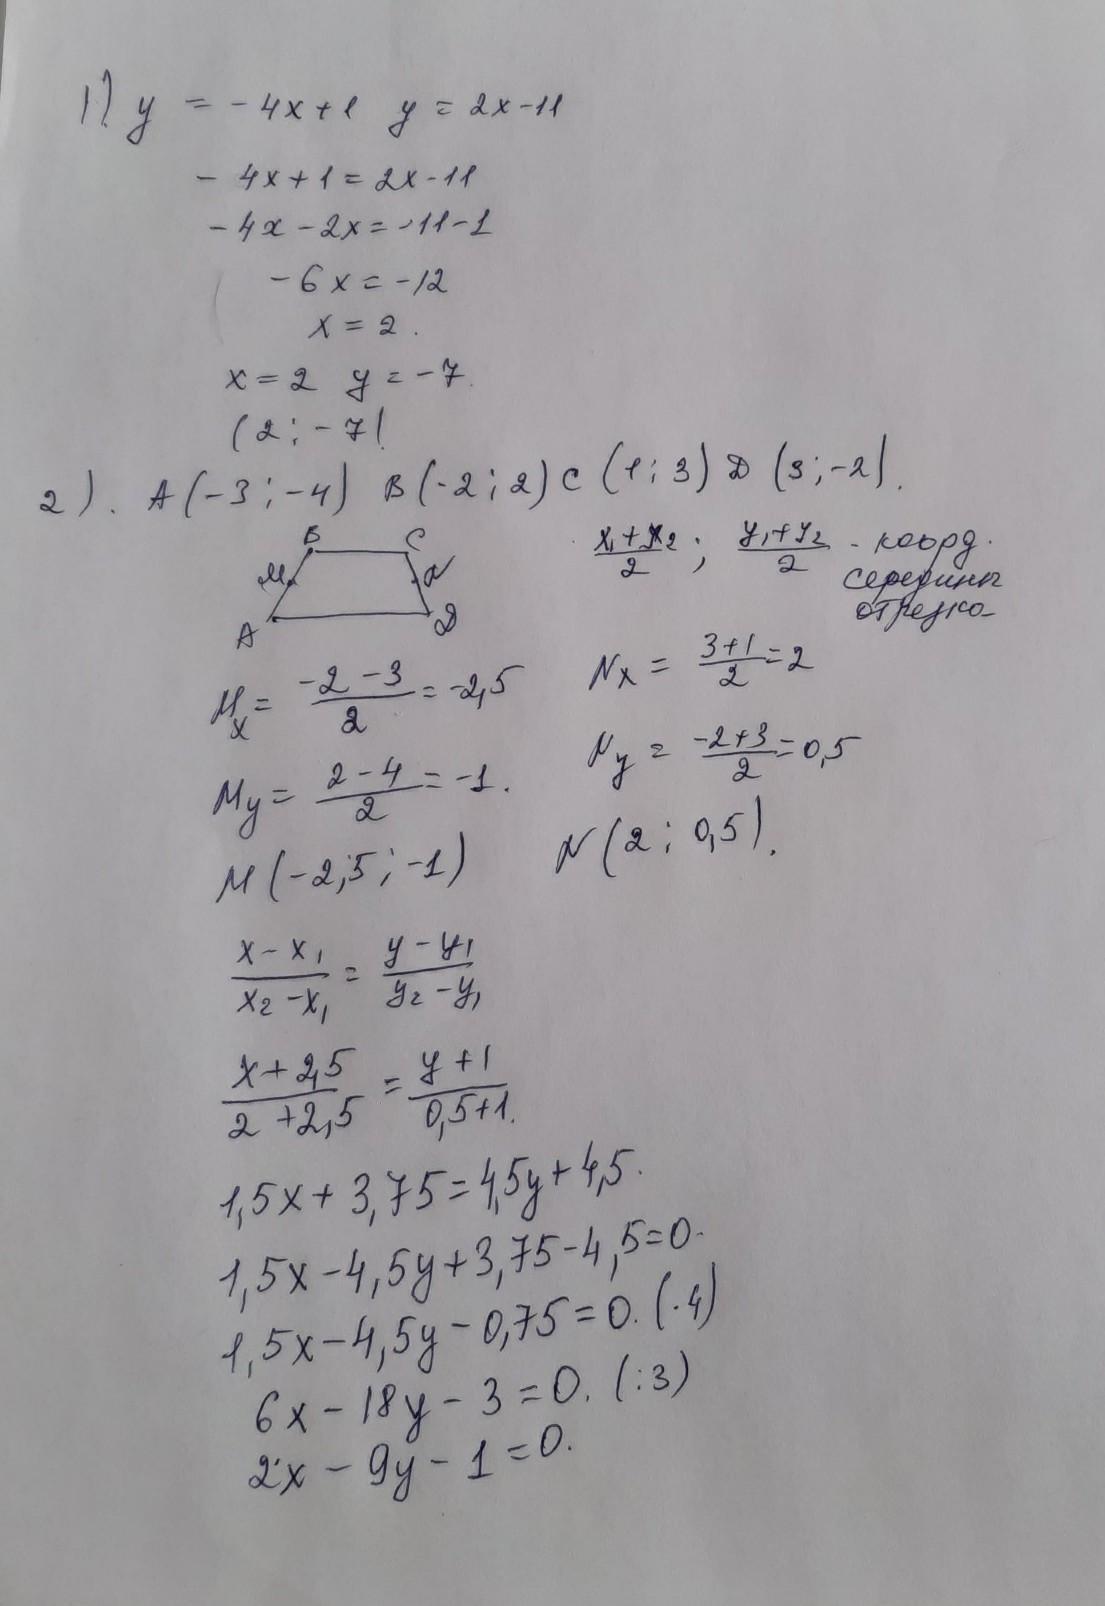 1) y = -4x+1 y = 2x-11
-4x+1=2x-11
-4x-2x=-11-1
-6x=-12
x=2.
x=2 y=-7.
(2;-7)
2). A(-3;-4) B(-2;2) C(1;3) D(3;-2).
B C
M N
A D
x₁+x₂/2 ; y₁+y₂/2 - коорд.
середины
отрезка
Mx = -2-3/2 = -2,5
Nx = 3+1/2 = 2
My = 2-4/2 = -1.
Ny = -2+3/2 = 0,5
M(-2,5;-1)
N(2;0,5).
x-x₁/x₂-x₁ = y-y₁/y₂-y₁
x+2,5/2+2,5 = y+1/0,5+1.
1,5x+3,75=4,5y+4,5.
1,5x-4,5y+3,75-4,5=0.
1,5x-4,5y-0,75=0. (·4)
6x-18y-3=0. (:3)
2x-9y-1=0.